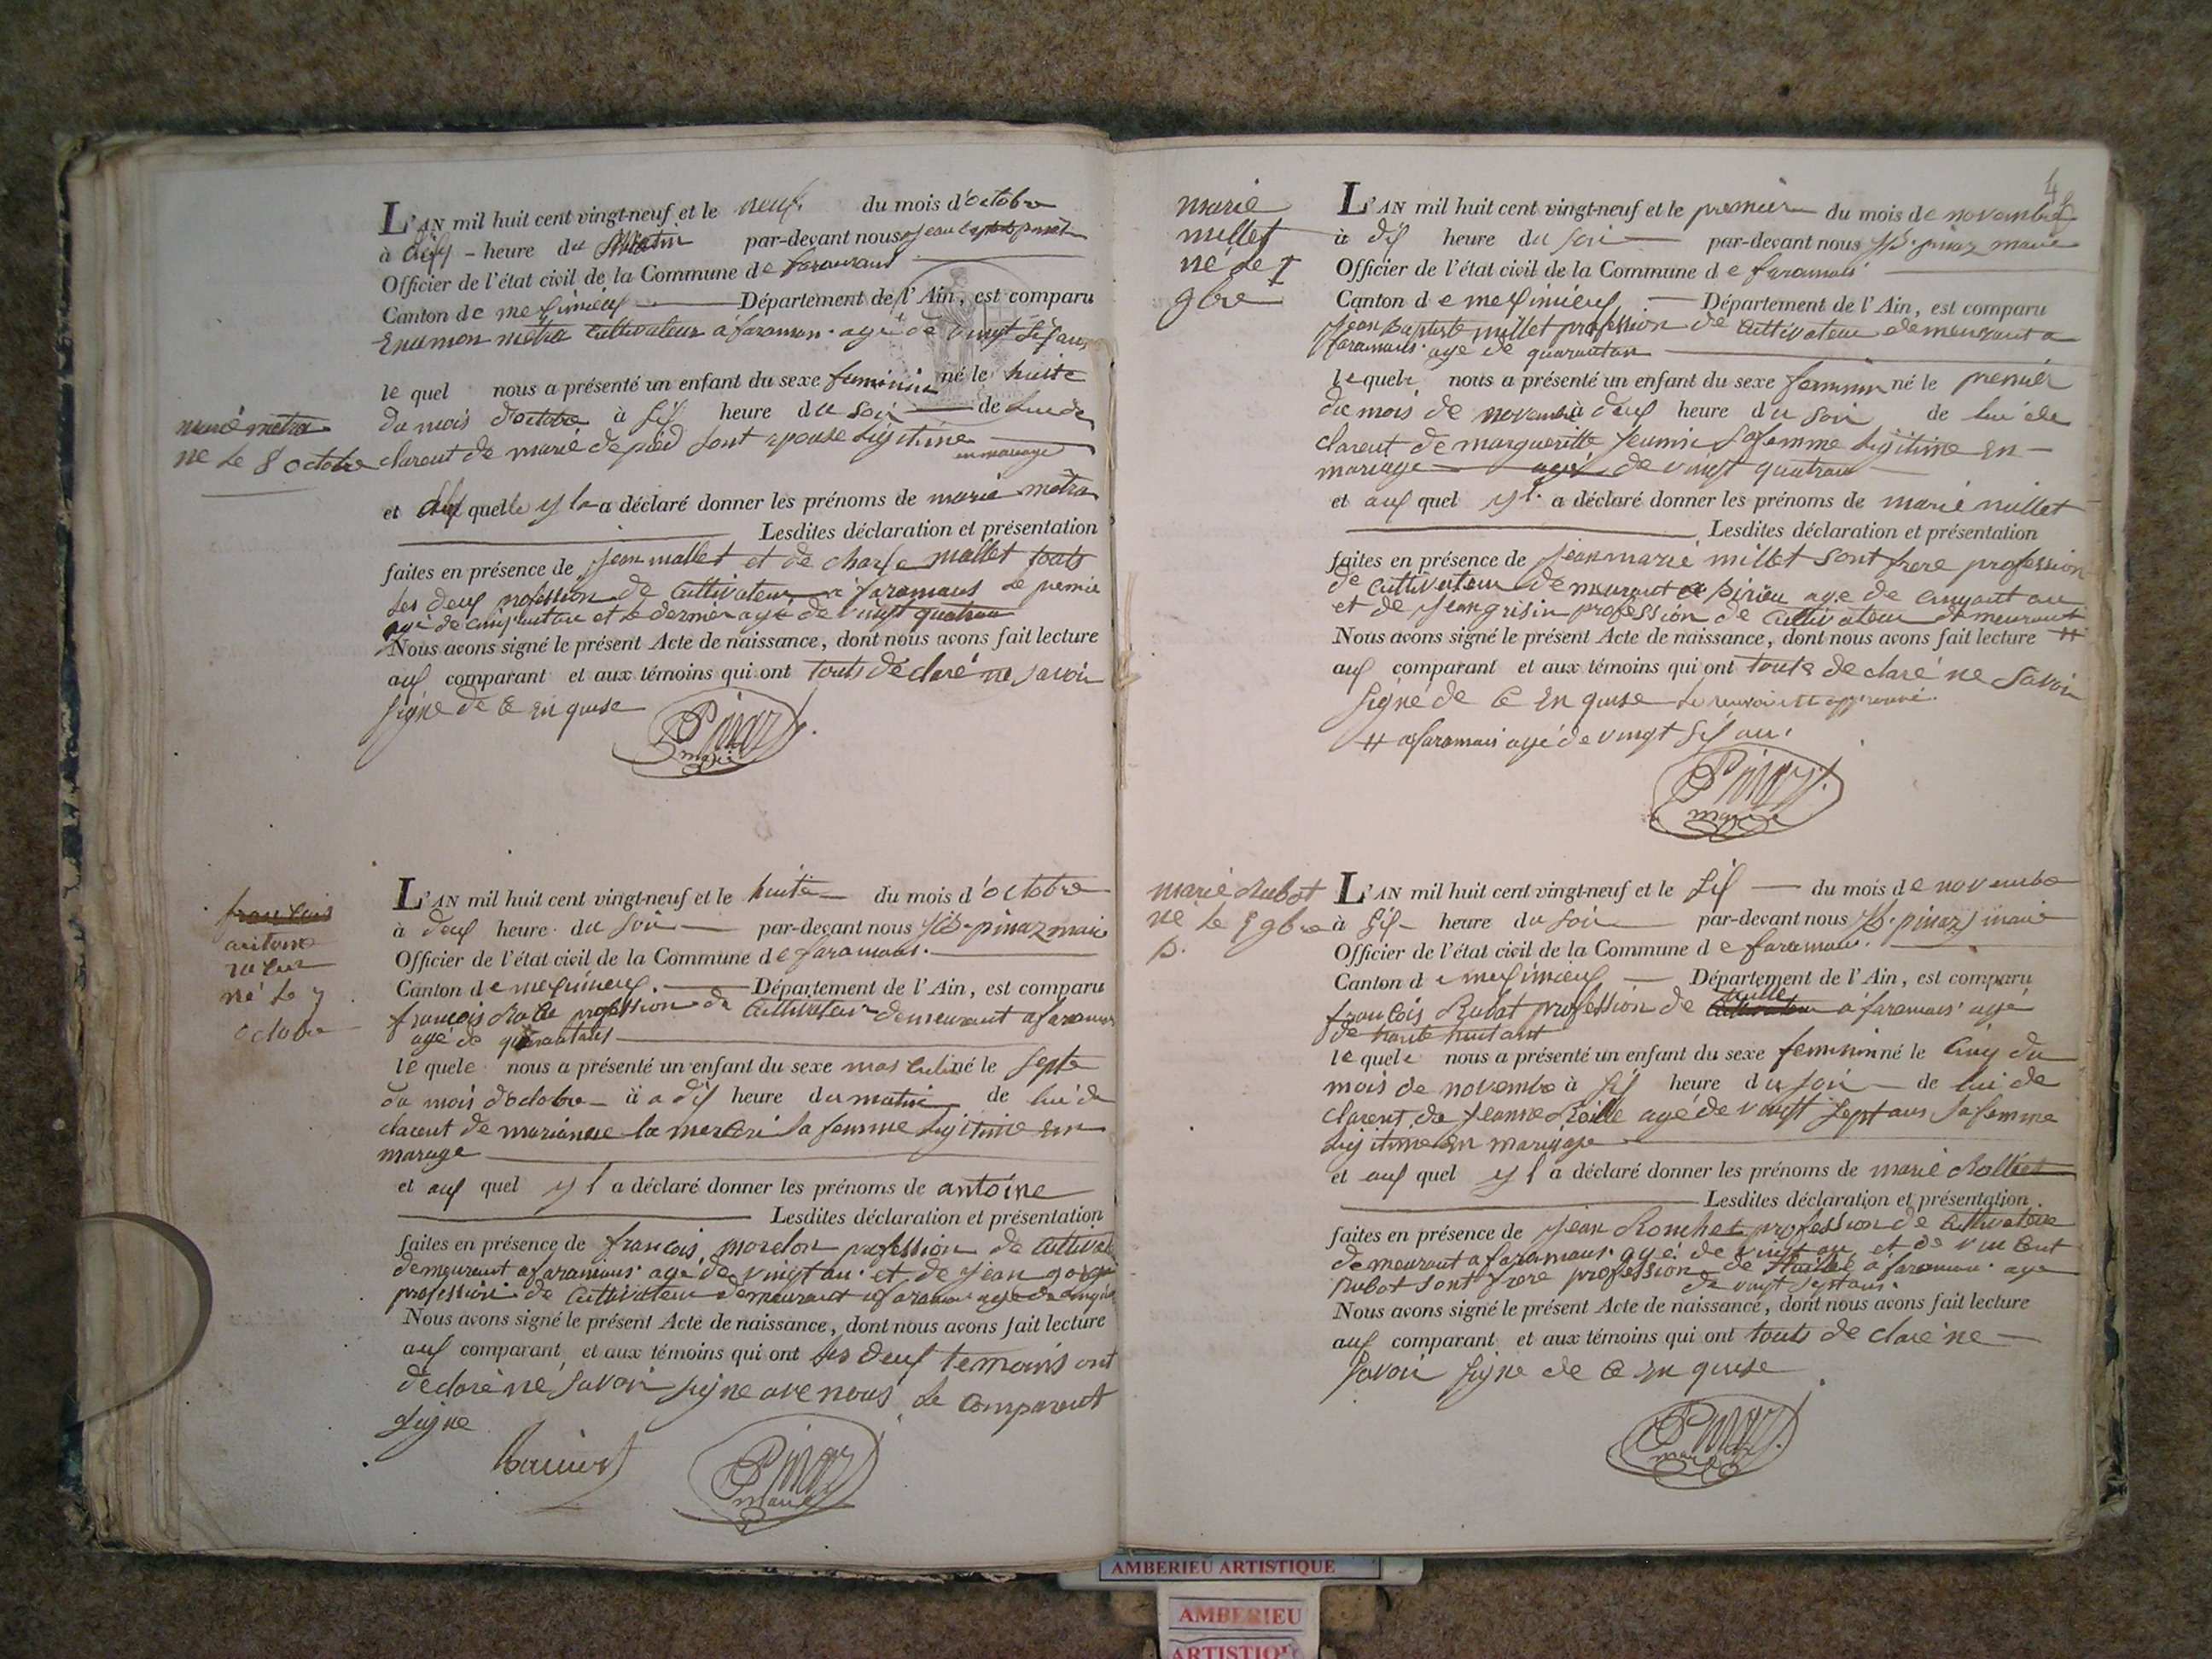 L'AN mil huit cent vingt-neuf et le neuf du mois d'octobre
à dix - heure du Matin par-devant nous jean
Officier de l'état civil de la Commune de faramans
Canton de meximieux Département de l'Ain, est comparu
Enumon métra Cultivateur a faraman. agé de vingt six ans
le quel nous a présenté un enfant du sexe feminin né le huite
du mois d'octobre à six heure du soir de lui de
clarent de marie de pied sont epouse Légitime
en mariage
et aux quelle y la a déclaré donner les prénoms de marie métra
Lesdites déclaration et présentation
faites en présence de jean mallet et de charle mallet touts
Les deux profession de Cultivateur a faramans Le premie
agé de cinquantan et Le dernier agé de vingt quatran
Nous avons signé le présent Acte de naissance, dont nous avons fait lecture
aux comparant et aux témoins qui ont touts declaré ne savoir
signé de ce En quise
Pinaz
maire
marie métra
né Le 8 octobre
L'AN mil huit cent vingt-neuf et le huite du mois d'octobre
à deux heure du soir par-devant nous JB. pinaz maire
Officier de l'état civil de la Commune de faramans.
Canton de meximieux. Département de l'Ain, est comparu
francois profession de Cultivateur demeurant a faramans
agé de quarantans
le quele nous a présenté un enfant du sexe masculin né le septe
du mois d'octobre à a dix heure du matin de lui de
clarent de marianne la merciere sa femme Legitime En
mariage
et aux quel y l a déclaré donner les prénoms de antoine
Lesdites déclaration et présentation
faites en présence de francois morelon profession de Cultivat
demeurant a faramans. agé de vingt an. et de jean
profession de Cultivateur demeurant a faraman agé de
Nous avons signé le présent Acte de naissance, dont nous avons fait lecture
aux comparant et aux témoins qui ont Les deux temoins ont
declaré ne savoir signe ave nous Le comparent
signe
Pinaz
maire
francois
antoine
né Le 7
octobre
L'AN mil huit cent vingt-neuf et le premier du mois de novembre
à dix heure du soir par-devant nous JB. pinaz maire
Officier de l'état civil de la Commune de faramans
Canton de meximieux Département de l'Ain, est comparu
jean Baptiste millet profession de Cultivateur demeurant a
faramans. agé de quarantan
le quele nous a présenté un enfant du sexe feminin né le premier
du mois de novembre à deux heure du soir de lui de
clarent de margueritte jeunin sa femme Legitime En
mariage agé de vingt quatran
et aux quel y l a déclaré donner les prénoms de marie millet
Lesdites déclaration et présentation
faites en présence de jean marie millet sont frere profession
de Cultivateur demeurant a age de
et de jean grisin profession de Cultivateur demeurant
Nous avons signé le présent Acte de naissance, dont nous avons fait lecture #
aux comparant et aux témoins qui ont touts declaré ne savoir
signé de ce En quise Le renvoi # approuvé.
# a faramans agé de vingt six an.
Pinaz
maire
marie
millet
né Le 1
9bre
L'AN mil huit cent vingt-neuf et le six du mois de novembe
à six heure du soir par-devant nous JB. pinaz maire
Officier de l'état civil de la Commune de faramans.
Canton de meximieux Département de l'Ain, est comparu
francois Rubat profession de Cultivateur a faramans. agé
de trante huit ant
le quele nous a présenté un enfant du sexe feminin né le cinq du
mois de novembe à six heure du soir de lui de
clarent de jeanne Reille agé de vingt sept ans sa femme
Legitime En mariage
et aux quel y l a déclaré donner les prénoms de marie
Lesdites déclaration et présentation
faites en présence de jean Ronchet profession de Cultivateur
demeurant a faramans. agé de vingt an et de vincent
Rubat sont frere profession de a faraman. age
de vingt sept ans.
Nous avons signé le présent Acte de naissance, dont nous avons fait lecture
aux comparant et aux témoins qui ont touts de claré ne
savoir signe de ce En quise
Pinaz
maire
marie Rubat
né Le 5 9bre
AMBERIEU ARTISTIQUE
AMBERIEU
ARTISTIQUE